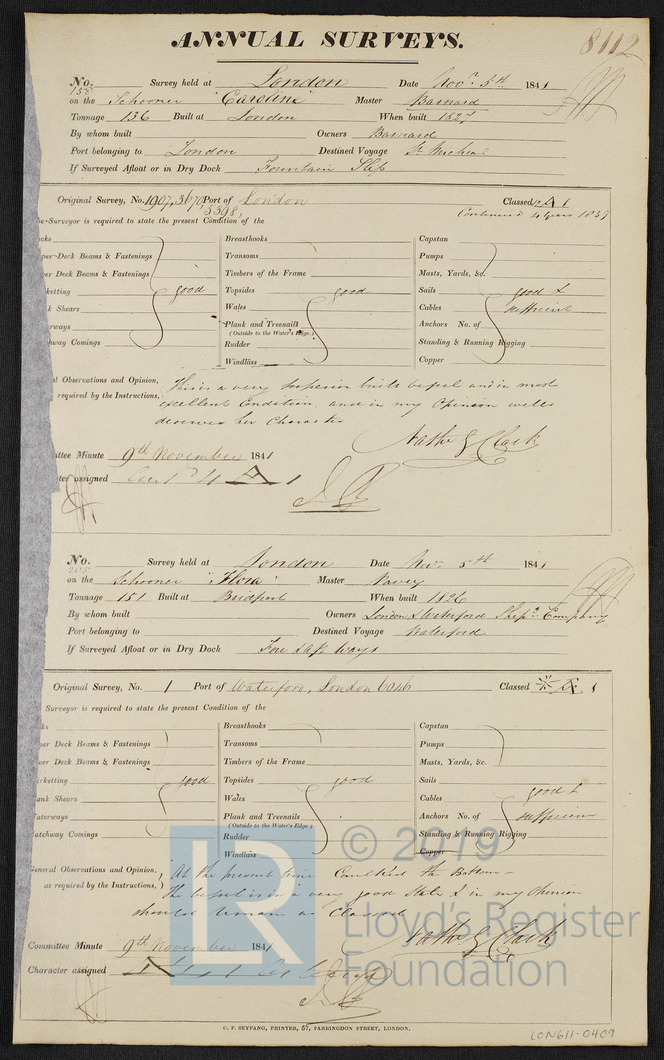 ANNUAL SURVEYS.
8112
No. 158 Survey held at London Date Nov.r 5th 1841
on the Schooner "Caroline" Master Barnard
Tonnage 136 Built at London When built 1827
By whom built Owners Barnard
Port belonging to London Destined Voyage St Michael
If Surveyed Afloat or in Dry Dock Fountain Slip
Original Survey, No. 1907, 3670, 5398, Port of London Classed A 1
Continued 4 years 1839
e-Surveyor is required to state the present Condition of the
cks Breasthooks Capstan
per-Deck Beams & Fastenings Transoms Pumps
er Deck Beams & Fastenings Timbers of the Frame Masts, Yards, &c.
rketting good Topsides good Sails good &
k Shears Wales Cables sufficient
erways Plank and Treenails Anchors No. of
(Outside to the Water's Edge.)
hway Comings Rudder Standing & Running Rigging
Windlass Copper
l Observations and Opinion, This is a very superior built vessel and in most
required by the Instructions, excellent Condition, and in my Opinion well
deserves her Character
Nathl G Clark
ittee Minute 9th November 1841
ter assigned A 1
No. 205 Survey held at London Date Nov.r 5th 1841
on the Schooner "Flora" Master Pavey
Tonnage 151 Built at Bridport When built 1826
By whom built Owners London & Waterford Ship.g Company
Port belonging to Destined Voyage Waterford
If Surveyed Afloat or in Dry Dock Fore Slip Ways
Original Survey, No. 1 Port of Waterford, London 6046 Classed 1
Surveyor is required to state the present Condition of the
ks Breasthooks Capstan
per Deck Beams & Fastenings Transoms Pumps
wer Deck Beams & Fastenings Timbers of the Frame Masts, Yards, &c.
irketting good Topsides good Sails
ank Shears Wales Cables good &
aterways Plank and Treenails Anchors No. of sufficient
(Outside to the Water's Edge.)
atchway Comings Rudder Standing & Running Rigging
Windlass Copper
eneral Observations and Opinion, At the present time Caulked the Bottom—
as required by the Instructions, The vessel is in a very good State & in my Opinion
should remain as Classed
Nathl G Clark
Committee Minute 9th November 1841
Character assigned
C. F. SEYFANG, PRINTER, 57, FARRINGDON STREET, LONDON.
LON611-0409
LR
© 2019
Lloyd's Register
Foundation